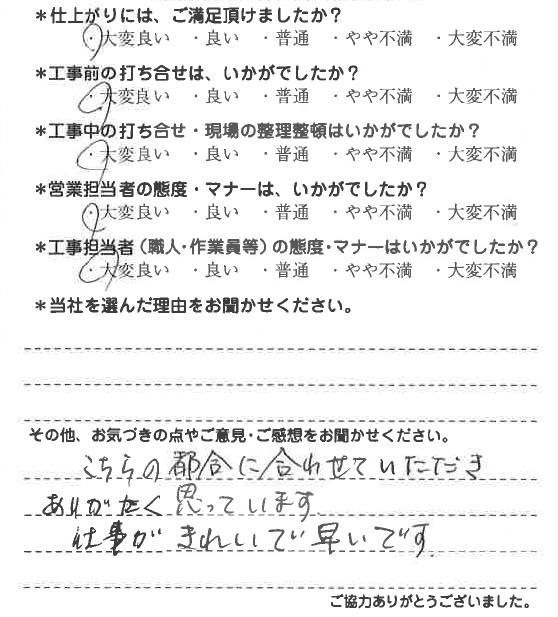 *仕上がりには、ご満足頂けましたか？
・大変良い ・良い ・普通 ・やや不満 ・大変不満
*工事前の打ち合せは、いかがでしたか？
・大変良い ・良い ・普通 ・やや不満 ・大変不満
*工事中の打ち合せ・現場の整理整頓はいかがでしたか？
・大変良い ・良い ・普通 ・やや不満 ・大変不満
*営業担当者の態度・マナーは、いかがでしたか？
・大変良い ・良い ・普通 ・やや不満 ・大変不満
*工事担当者（職人・作業員等）の態度・マナーはいかがでしたか？
・大変良い ・良い ・普通 ・やや不満 ・大変不満
*当社を選んだ理由をお聞かせください。
その他、お気づきの点やご意見・ご感想をお聞かせください。
こちらの都合に合わせていただき
ありがたく思っています
仕事がきれいで早いです
ご協力ありがとうございました。